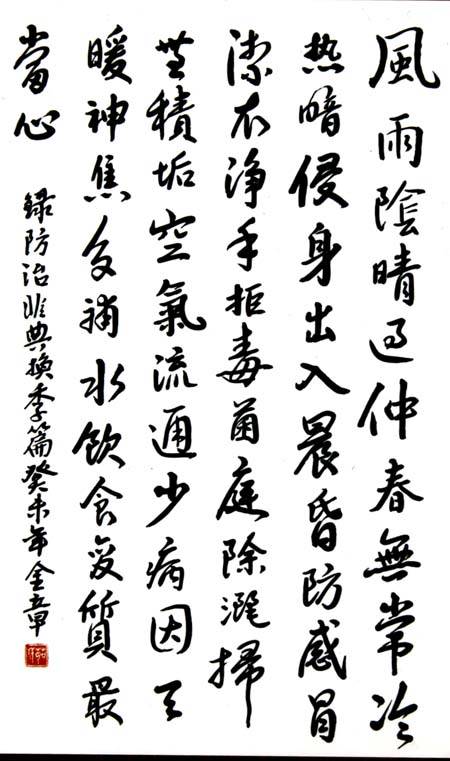 風雨陰晴过仲春無常冷
热暗侵身出入晨昏防感冒
潔衣浄手拒毒菌庭除灑掃
無積垢空氣流通少病因天
暖神焦多補水飲食变質最
當心
録防治非典换季篇癸未年金章